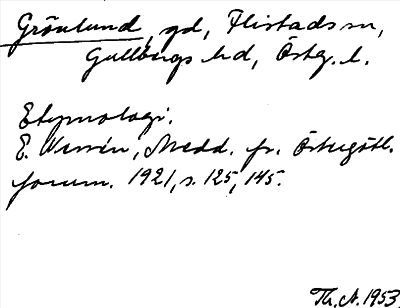 Grönlund, gd, Flistads sn,
Gullbergs hd, Österg. l.
Etymologi.
E. Wessén, Medd. fr. Östergötl.
fornm. 1921, s. 125, 145.
Th. A. 1953.